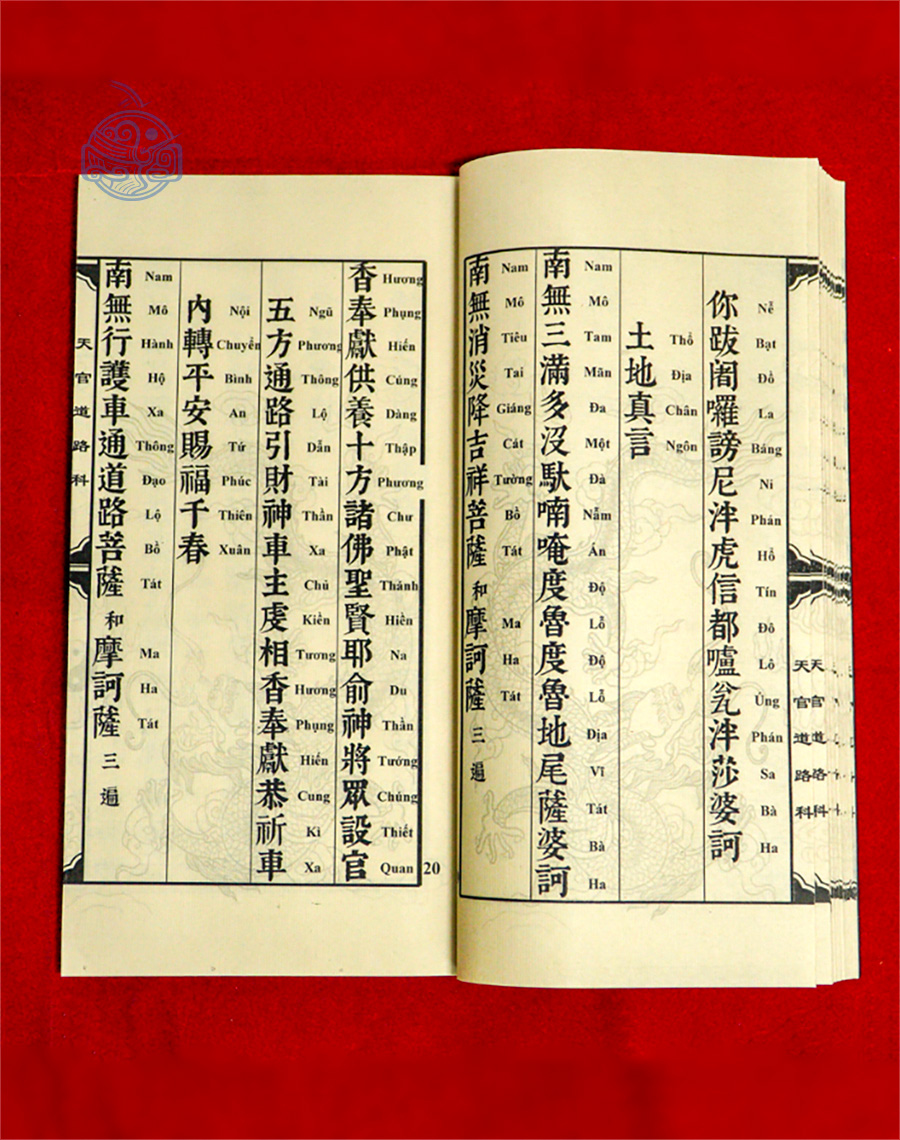 天官道路科
天官道路科
你跋闍囉謗尼泮虎信都嚧瓮泮莎婆訶
Nễ Bạt Đồ La Báng Ni Phán Hồ Tín Đô Lô Ủng Phán Sa Bà Ha
土地真言
Thổ Địa Chân Ngôn
南無三滿多沒馱喃唵度魯度魯地尾薩婆訶
Nam Mô Tam Mãn Đa Một Đà Nẫm Án Độ Lỗ Độ Lỗ Địa Vĩ Tát Bà Ha
南無消災降吉祥菩薩 和 摩訶薩 三遍
Nam Mô Tiêu Tai Giáng Cát Tường Bồ Tát Ma Ha Tát
20
香奉獻供養十方諸佛聖賢耶俞神將眾設官
Hương Phụng Hiến Cúng Dàng Thập Phương Chư Phật Thánh Hiền Na Du Thần Tướng Chúng Thiết Quan
五方通路引財神車主虔相香奉獻恭祈車
Ngũ Phương Thông Lộ Dẫn Tài Thần Xa Chủ Kiền Tương Hương Phụng Hiến Cung Kì Xa
內轉平安賜福千春
Nội Chuyển Bình An Tứ Phúc Thiên Xuân
南無行護車通道路菩薩 和 摩訶薩 三遍
Nam Mô Hành Hộ Xa Thông Đạo Lộ Bồ Tát Ma Ha Tát
天官道路科